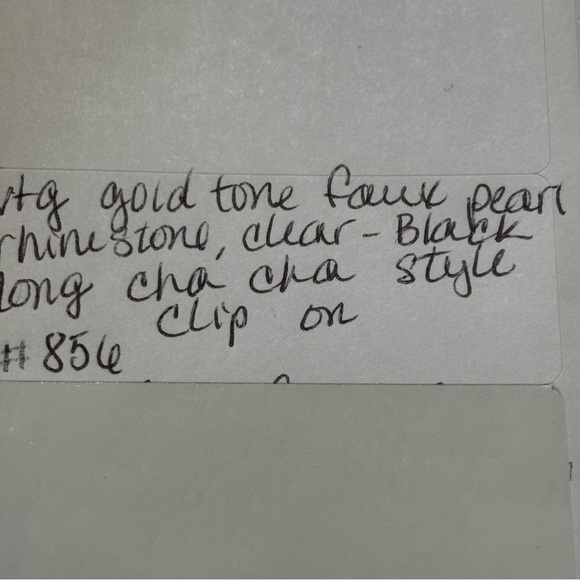 vtg gold tone faux pearl
rhinestone, clear - Black
long cha cha style
clip on
# 856